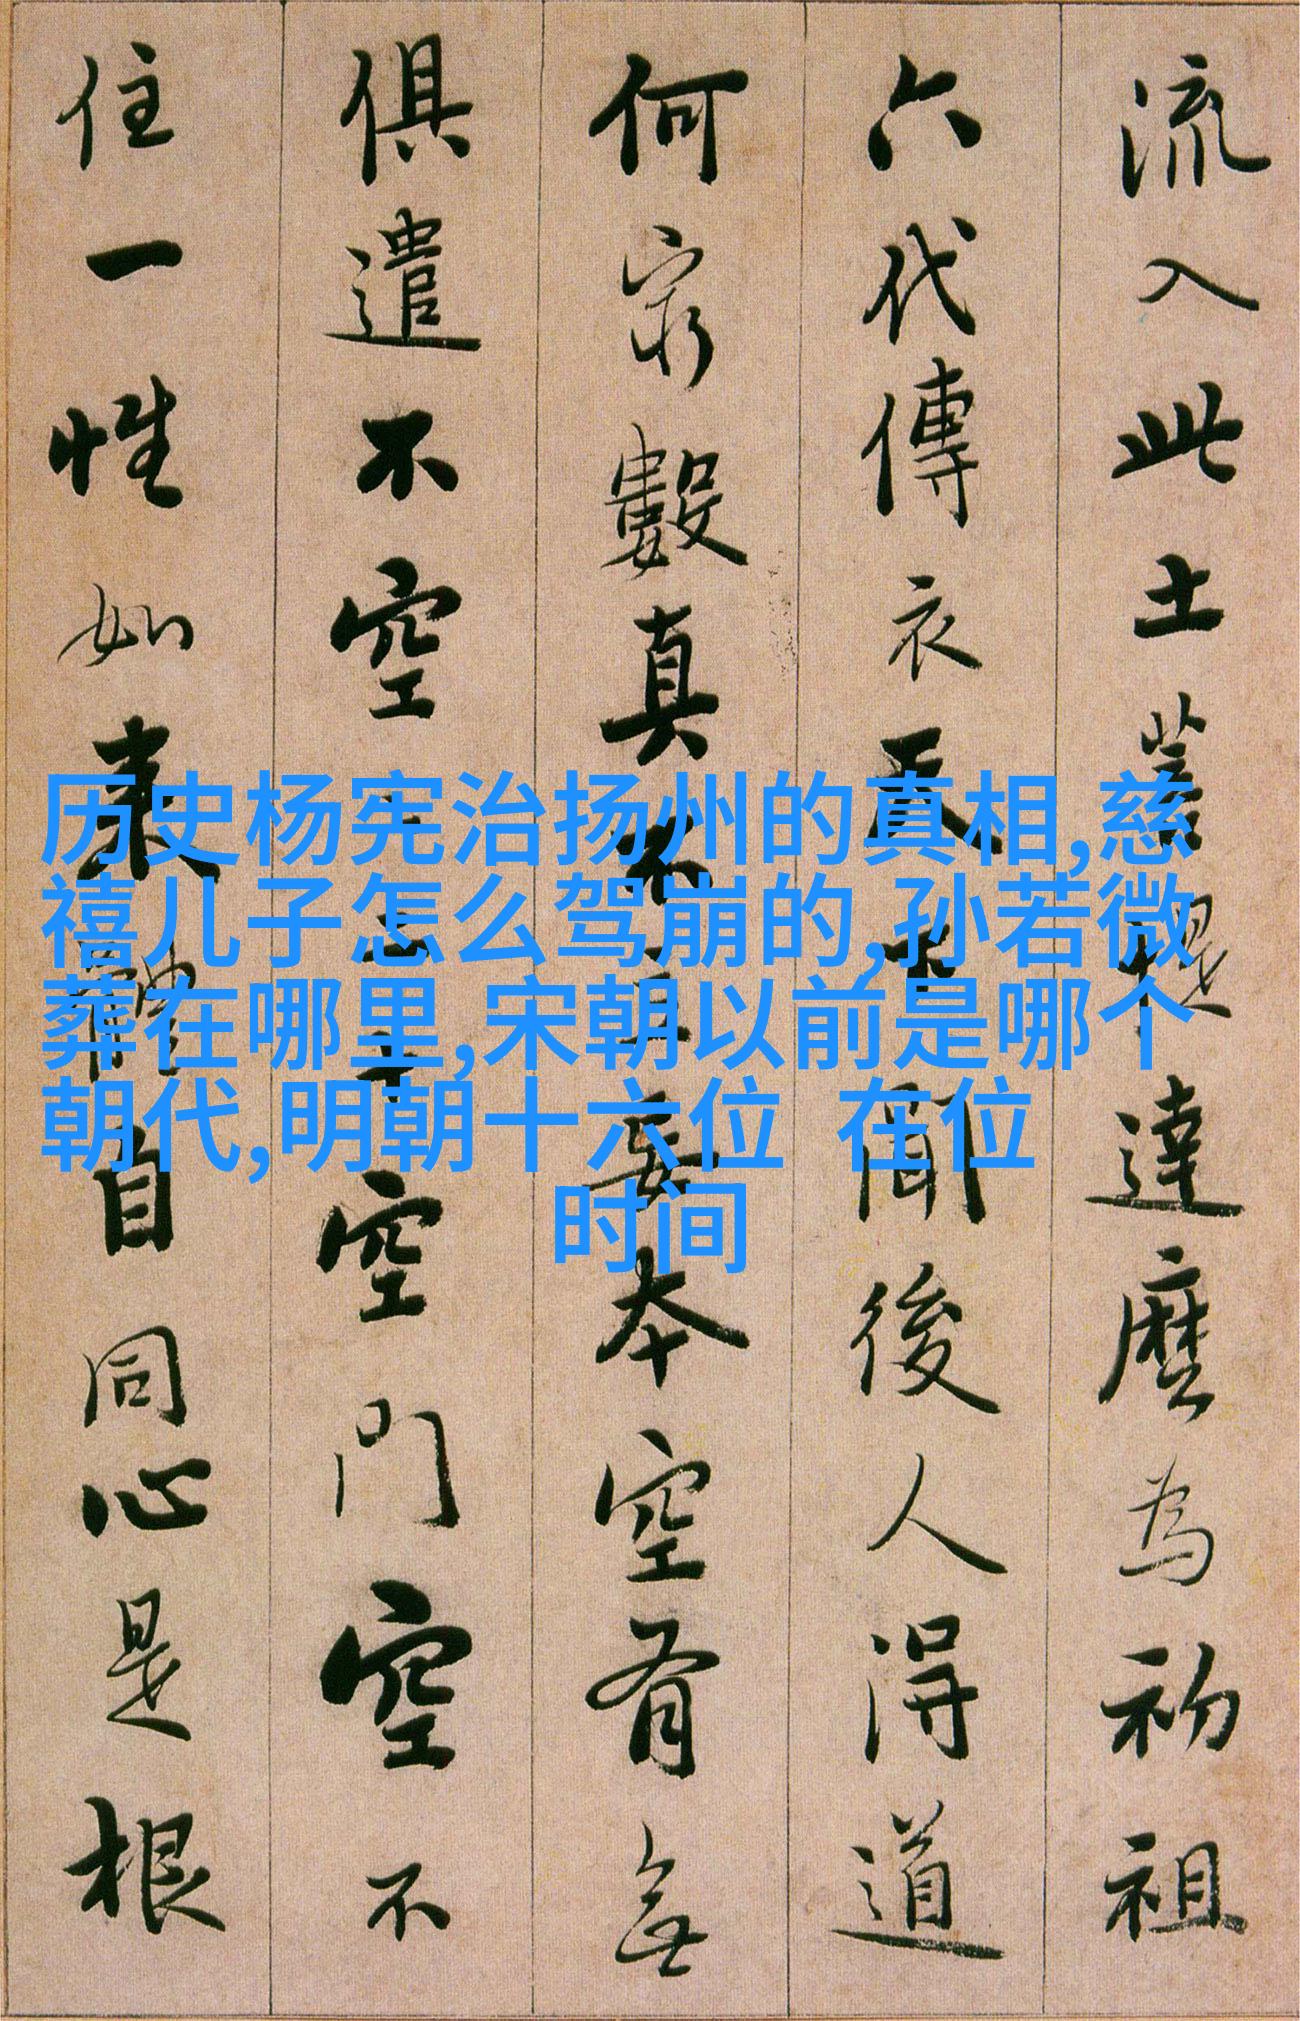 流入此土菩提達磨為初祖
六代傳衣天下聞後人得道
何窮數真不立妄本空有無
俱遣不空二十空門空不
住一性如来體自同心是根
历史杨宪治扬州的真相,慈
禧儿子怎么驾崩的,孙若微
葬在哪里,宋朝以前是哪个
朝代,明朝十六位 在位
时间